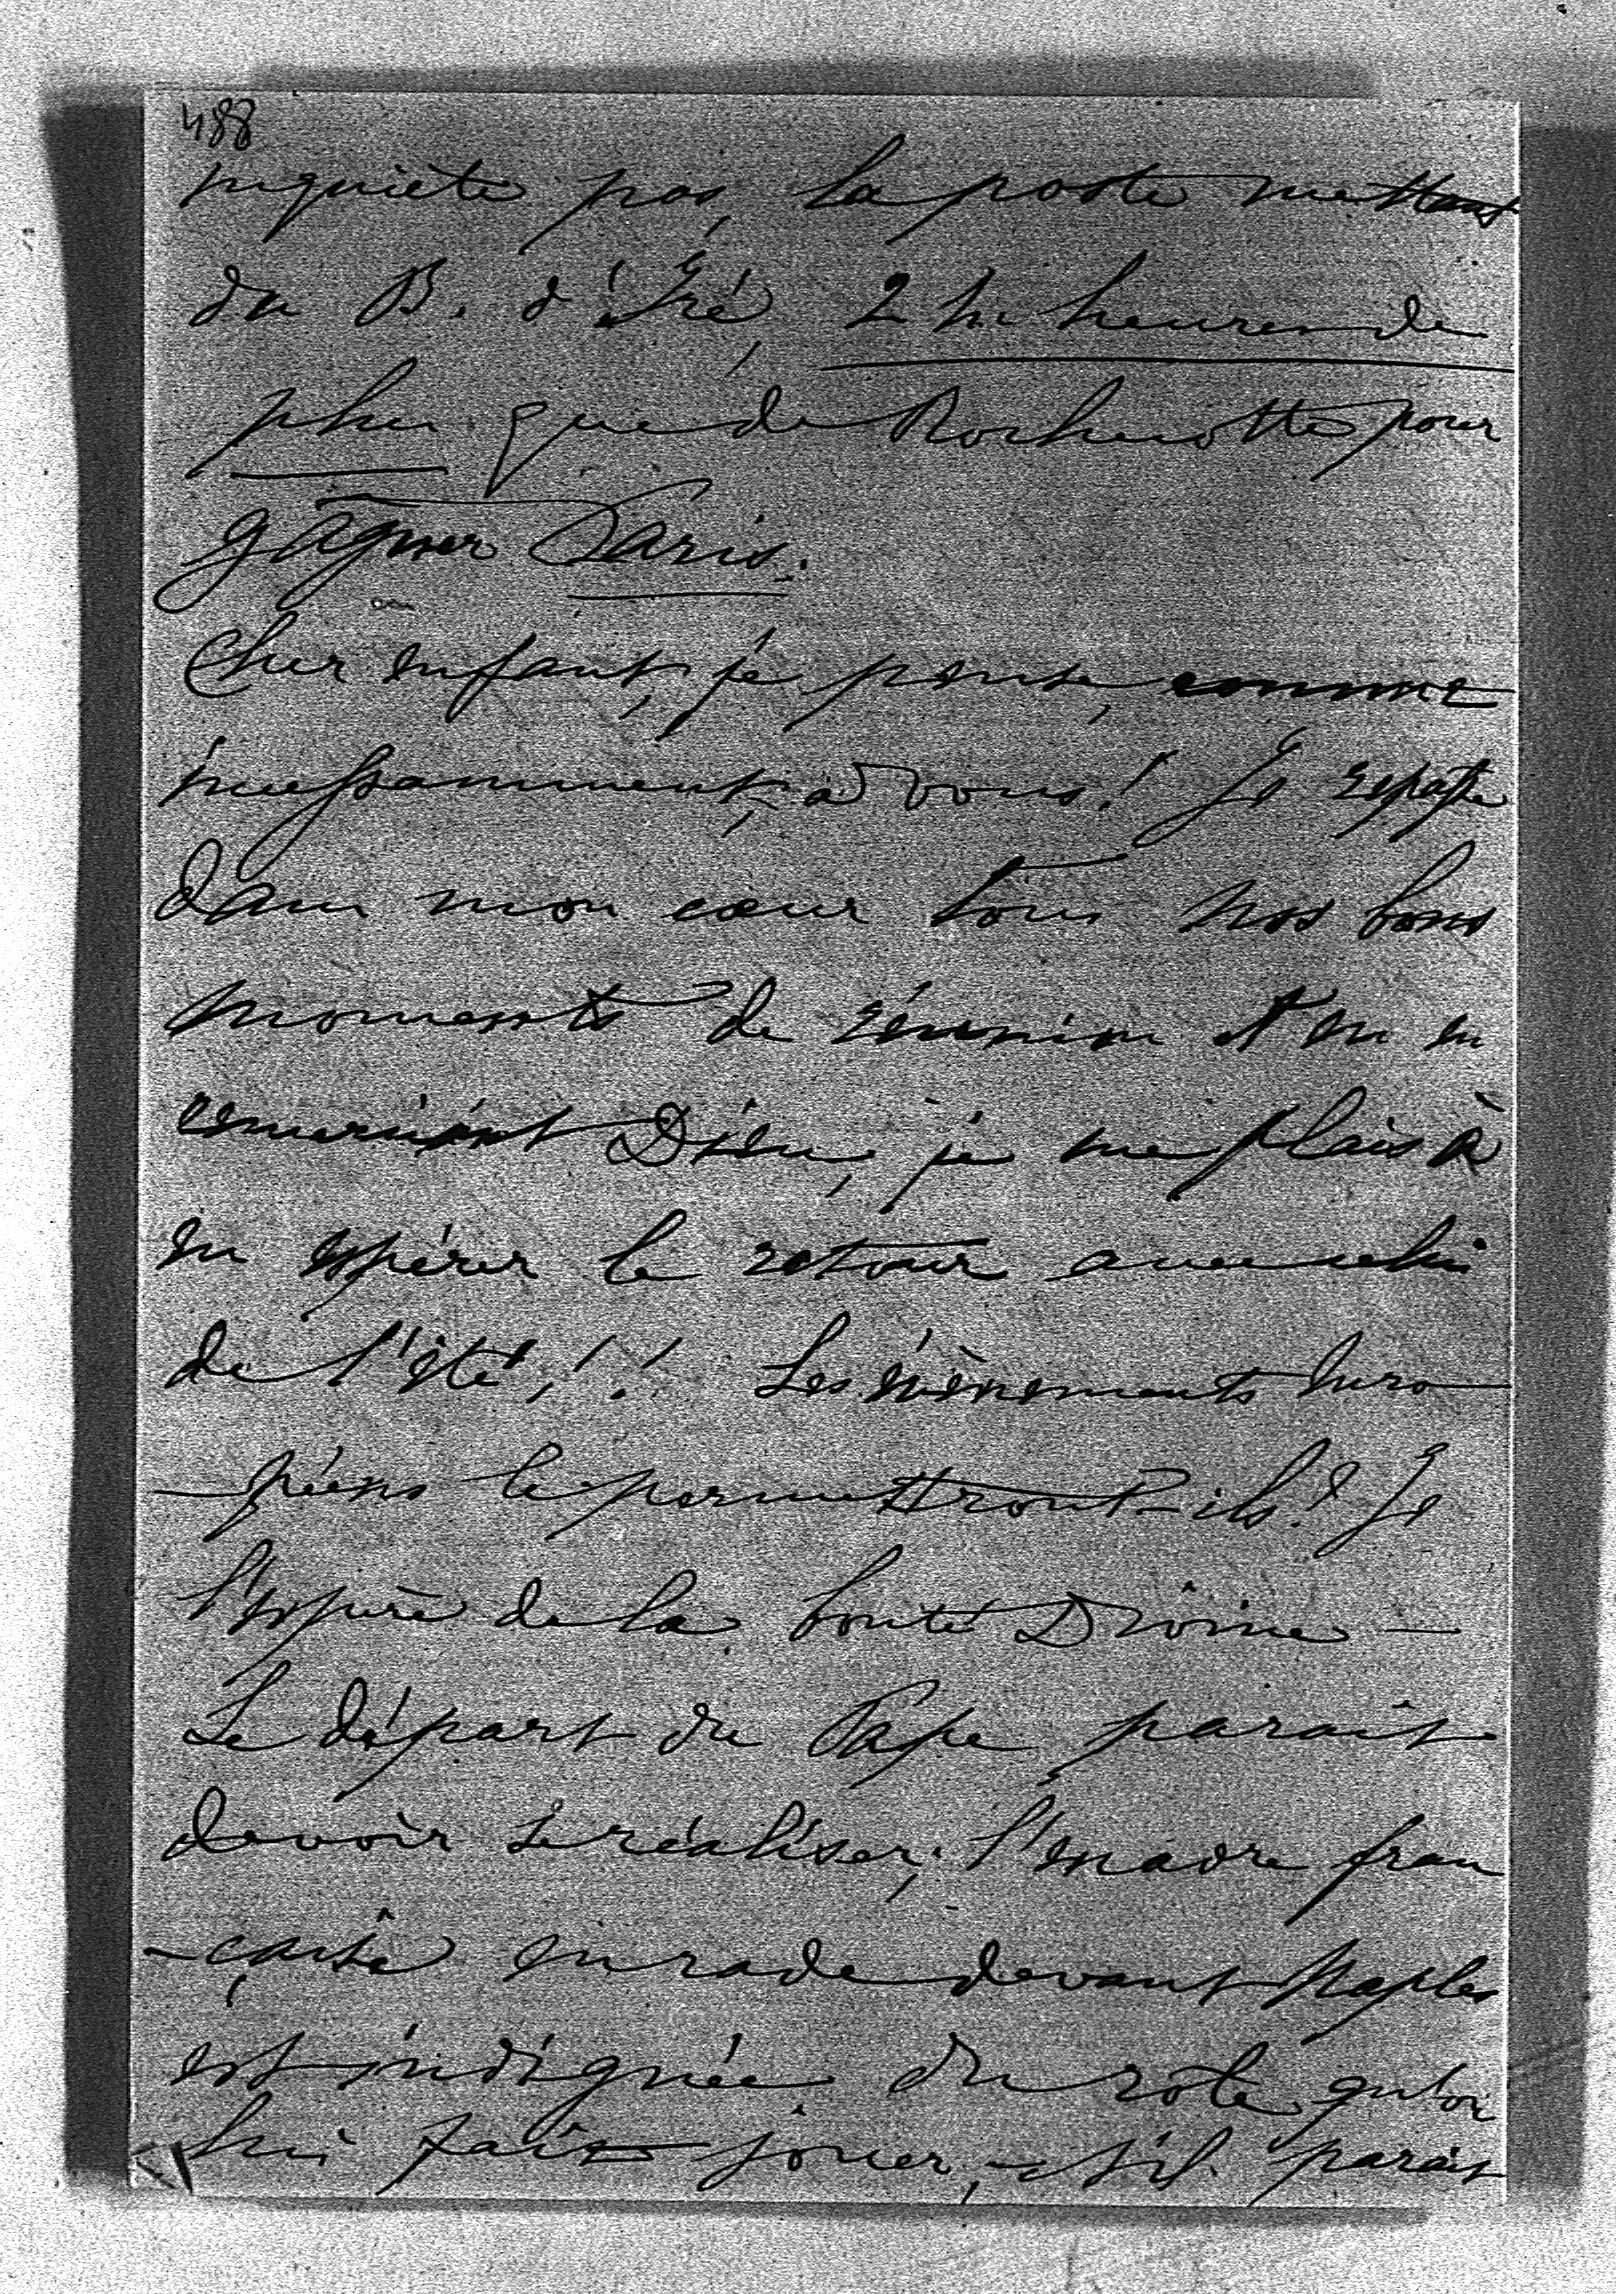 488
inquiète pas, la poste mettant
du B. d'Iré, 24 heures de
plus que de Rochecotte pour
gâgner Paris.
Cher enfant, je pense,
incessamment, à vous! Je repasse
dans mon cœur tous nos bons
moments de réunion et en en
remerciant Dieu, je me plais à
en espérer le retour avec celui
de l'été,!! Les évènements Euro
-péens le permettront-ils? Je
l'espère de la bonté Divine —
Le départ du Pape parait
devoir se réaliser; l'escadre fran
-çaise en rade devant Naples
est indignée du rôle qu'on
lui fait jouer, et il parait